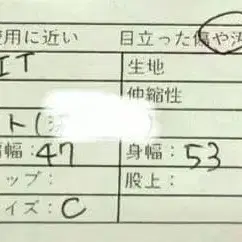 使用に近い 目立った傷や汚
IT 生地
伸縮性
ト(
肩幅:47 身幅:53
ップ: 股上:
イズ:C